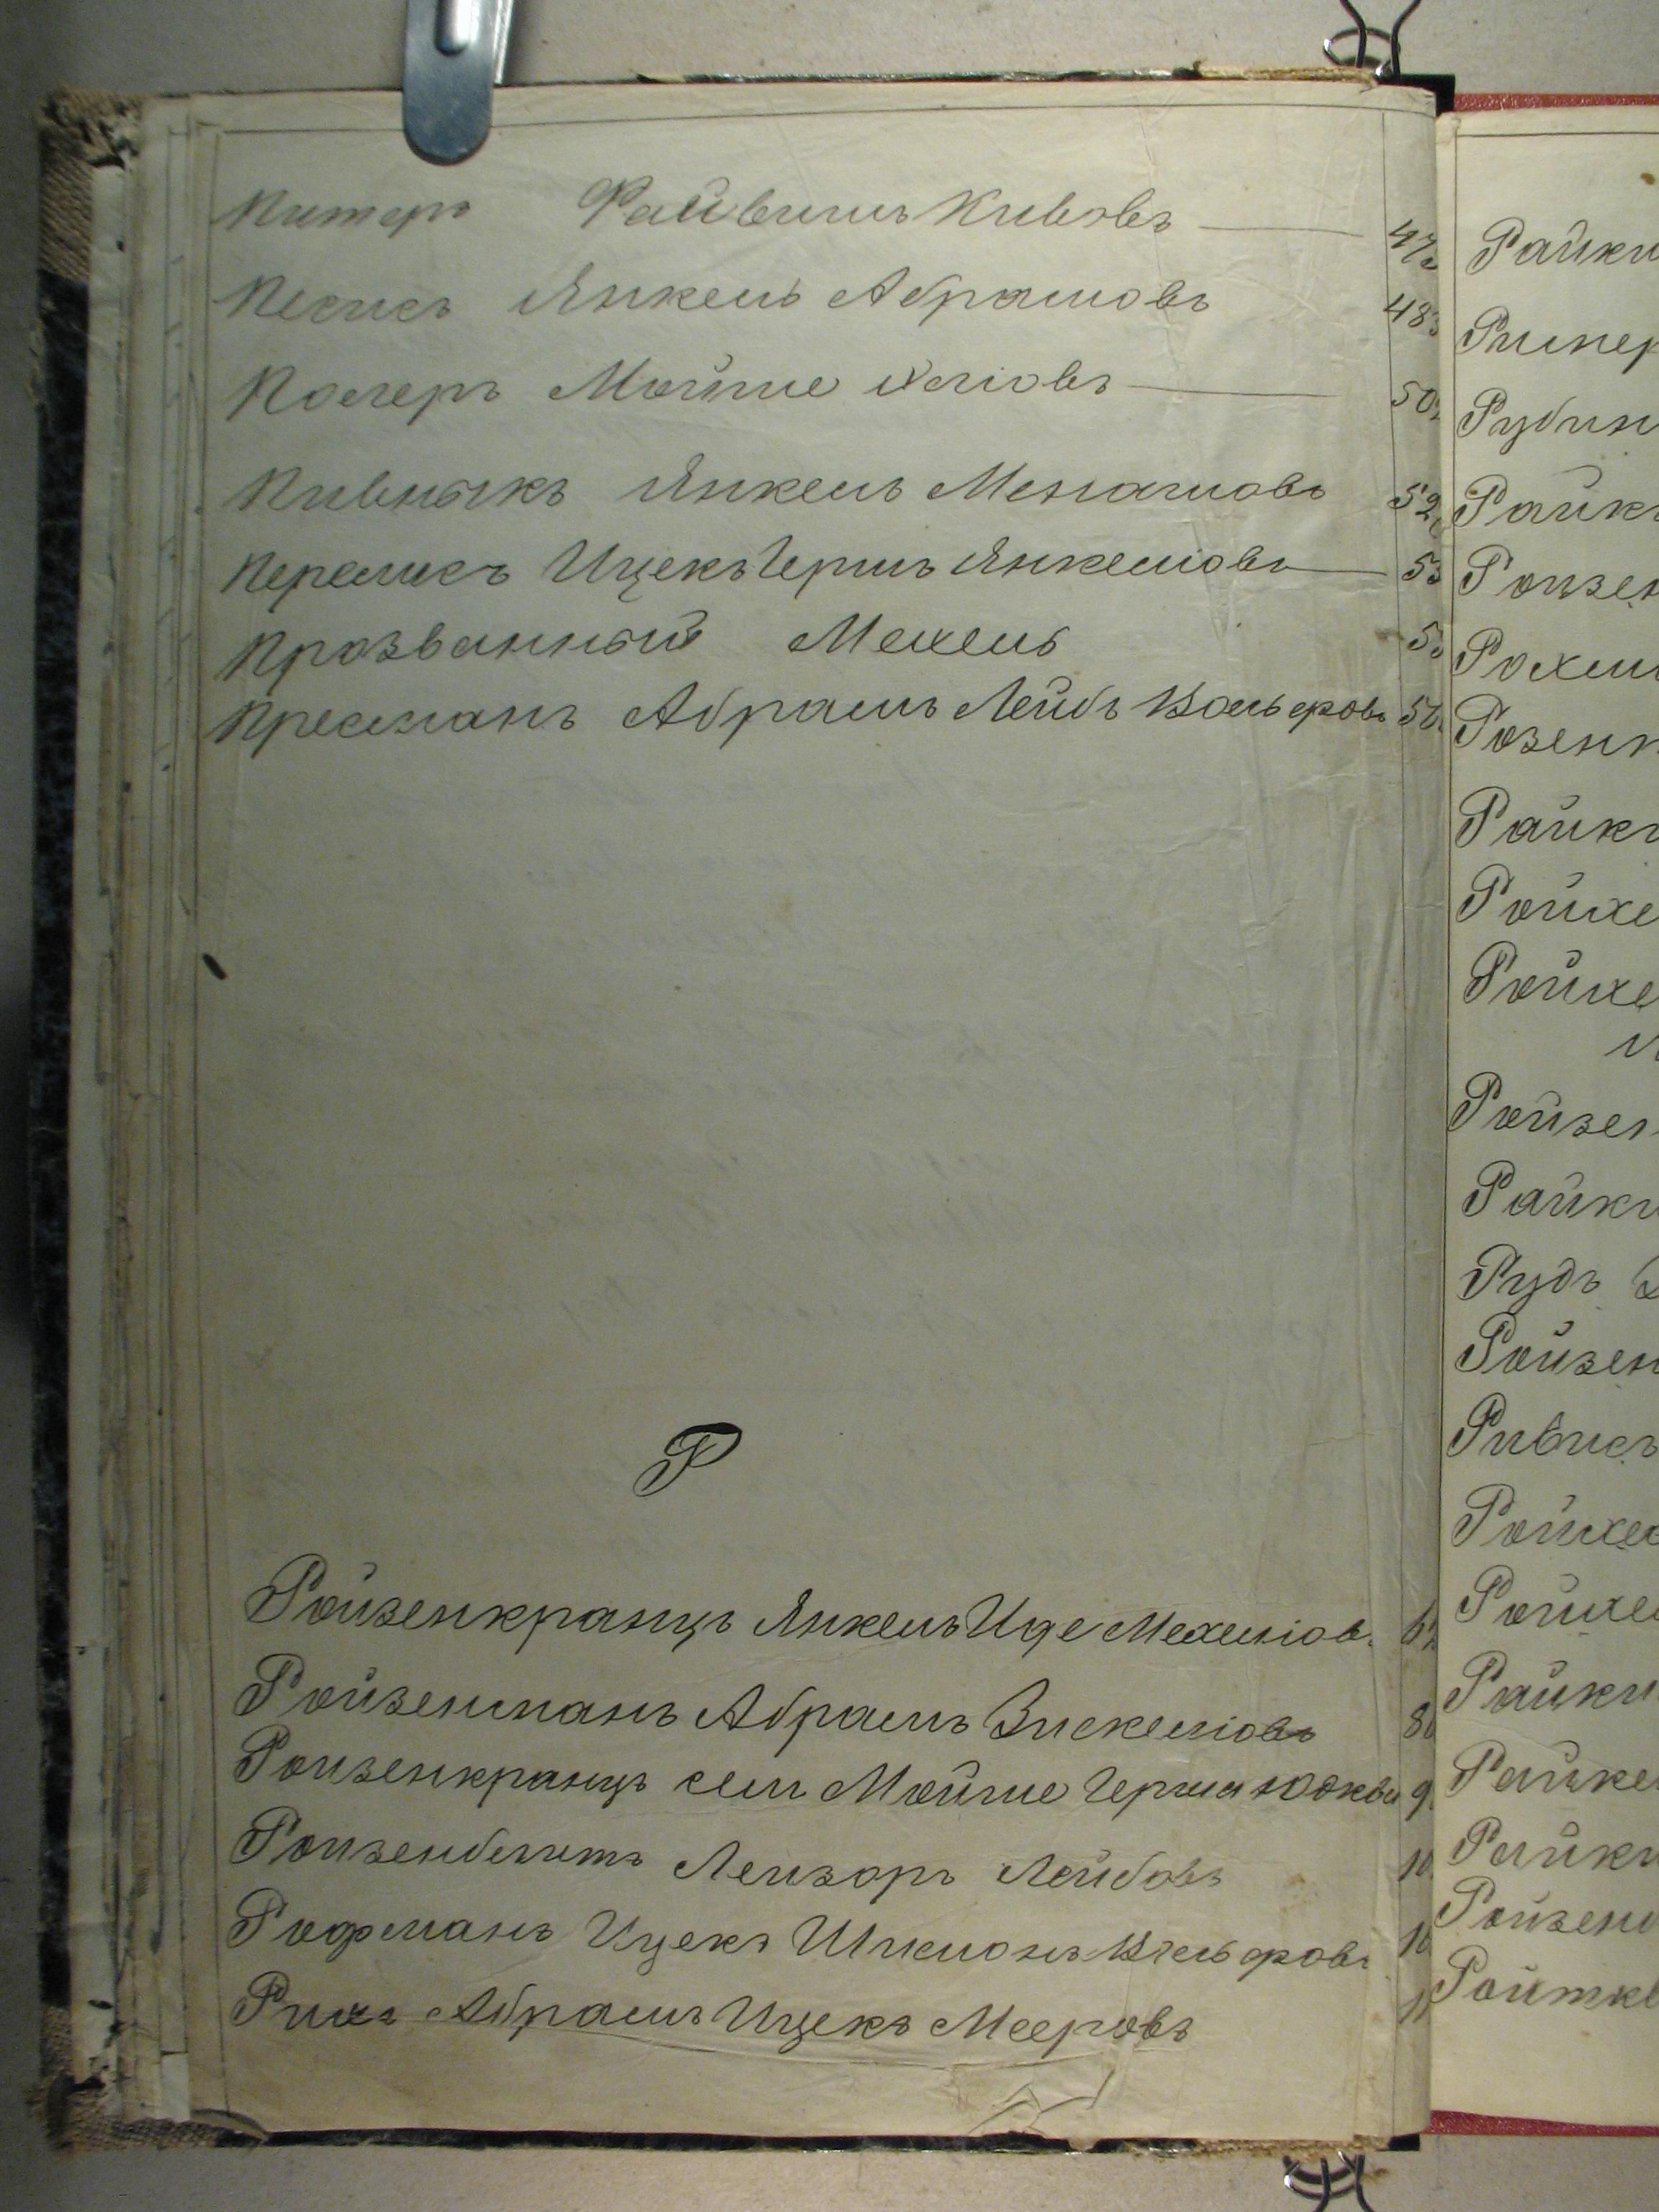 Питеръ Файвишъ Кивовъ 47
Песисъ Янкель Абрамовъ 48
Полеръ Мойше 50
Пивнякъ Янкель Менашовъ 52
Перелисъ Ицекъ Гершъ Янкеліовъ 53
Прозванный Мехель 5
Пресманъ Абрамъ Лейбъ Вольфовъ 5
Р
Ройзенкранцъ Янкель Иде Мехеліов. 6
Ройзенманъ Абрамъ Зискеліовъ 8
Ройзенкранцъ сем Мойше Герша Юдковъ 9
Ройзенблитъ Лейзоръ Лейбовъ 10
Рофманъ Ицекъ Шимонъ Вольфовъ 10
Рихъ Абрамъ Ицекъ Мееровъ 11
Райки
Рубин
Райк
Ройзен
Рохли
Розенк
Райк
Ройхе
Ройхе
Ройзен
Райки
Рудъ
Ройзен
Ривисъ
Ройхе
Ройхе
Райки
Райке
Райки
Ройзен
Ройтке